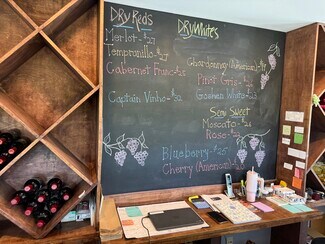 Dry Reds
Merlot - $27
Tempranillo - $27
Cabernet Franc -
Captain Vinho - $32
Dry Whites
Chardonnay (American)
Pinot Gris -
Goshen White -
Semi Sweet
Moscato -
Rose -
Blueberry -
Cherry (American)